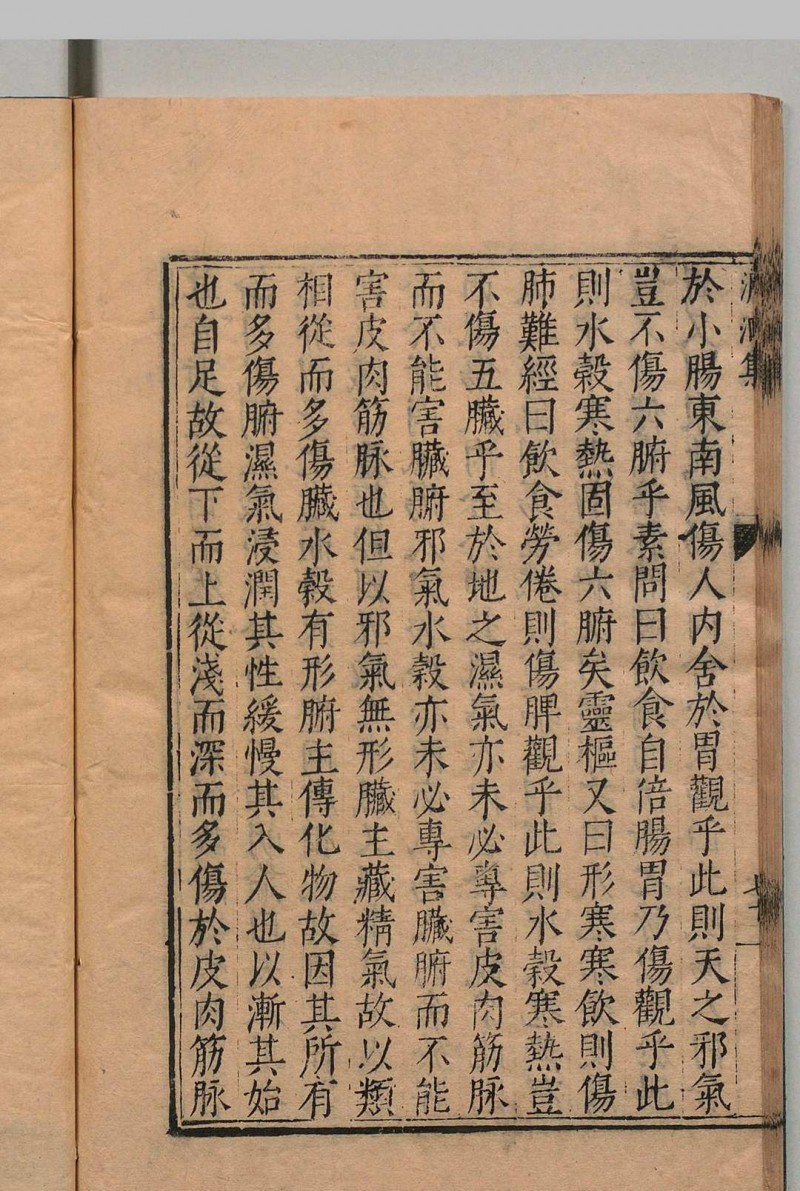 於小腸東南風傷人内舍於胃觀乎此則天之邪氣
豈不傷六腑乎素問曰飲食自倍腸胃乃傷觀乎此
則水穀寒熱固傷六腑矣靈樞又曰形寒寒飲則傷
肺難經曰飲食勞倦則傷脾觀乎此則水穀寒熱豈
不傷五臟乎至於地之濕氣亦未必專害皮肉筋脉
而不能害臟腑邪氣水穀亦未必專害臟腑而不能
害皮肉筋脉也但以邪氣無形臟主藏精氣故以類
相從而多傷臟水穀有形腑主傳化物故因其所有
而多傷腑濕氣浸潤其性緩慢其入人也以漸其始
也自足故從下而上從淺而深而多傷於皮肉筋脉